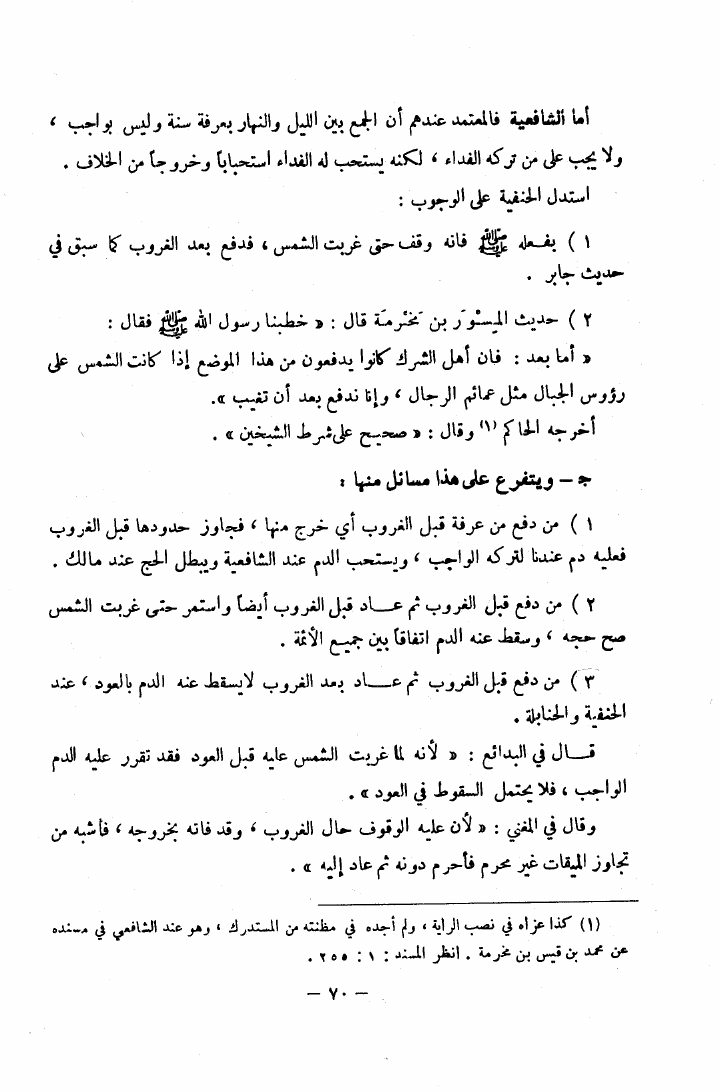 أما الشافعية فالمعتمد عندهم أن الجمع بين الليل والنهار بعرفة سنة وليس بواجب ،
ولا يجب على من تركه الفداء ، لكنه يستحب له الفداء استحباباً وخروجاً من الخلاف .
استدل الحنفية على الوجوب :
١ ) بفعله ﷺ فانه وقف حتى غربت الشمس ، فدفع بعد الغروب كما سبق في
حديث جابر .
٢ ) حديث المِسْوَر بن مَخْرمَة قال : « خطبنا رسول الله ﷺ فقال :
« أما بعد : فان أهل الشرك كانوا يدفعون من هذا الموضع إذا كانت الشمس على
رؤوس الجبال مثل عمائم الرجال ، وإنا ندفع بعد أن تغيب ».
أخرجه الحاكم (١) وقال : « صحيح على شرط الشيخين » .
ج – ويتفرع على هذا مسائل منها :
١ ) من دفع من عرفة قبل الغروب أي خرج منها ، فجاوز حدودها قبل الغروب
فعليه دم عندنا لتركه الواجب ، ويستحب الدم عند الشافعية ويبطل الحج عند مالك .
٢ ) من دفع قبل الغروب ثم عـــاد قبل الغروب أيضاً واستمر حتى غربت الشمس
صح حجه ، وسقط عنه الدم اتفاقاً بين جميع الأئمة .
٣ ) من دفع قبل الغروب ثم عـــاد بعد الغروب لايسقط عنه الدم بالعود ، عند
الحنفية والحنابلة .
قـــال في البدائع : « لأنه لما غربت الشمس عليه قبل العود فقد تقرر عليه الدم
الواجب ، فلا يحتمل السقوط في العود » .
وقال في المغني : « لأن عليه الوقوف حال الغروب ، وقد فاته بخروجه ، فأشبه من
تجاوز الميقات غير محرم فأحرم دونه ثم عاد إليه » .
(١) كذا عزاه في نصب الراية ، ولم أجده في مظنته من المستدرك ، وهو عند الشافعي في مسنده
عن محمد بن قيس بن مخرمة . انظر المسند : ١ : ٢٥٥ .
– ٧٠ –